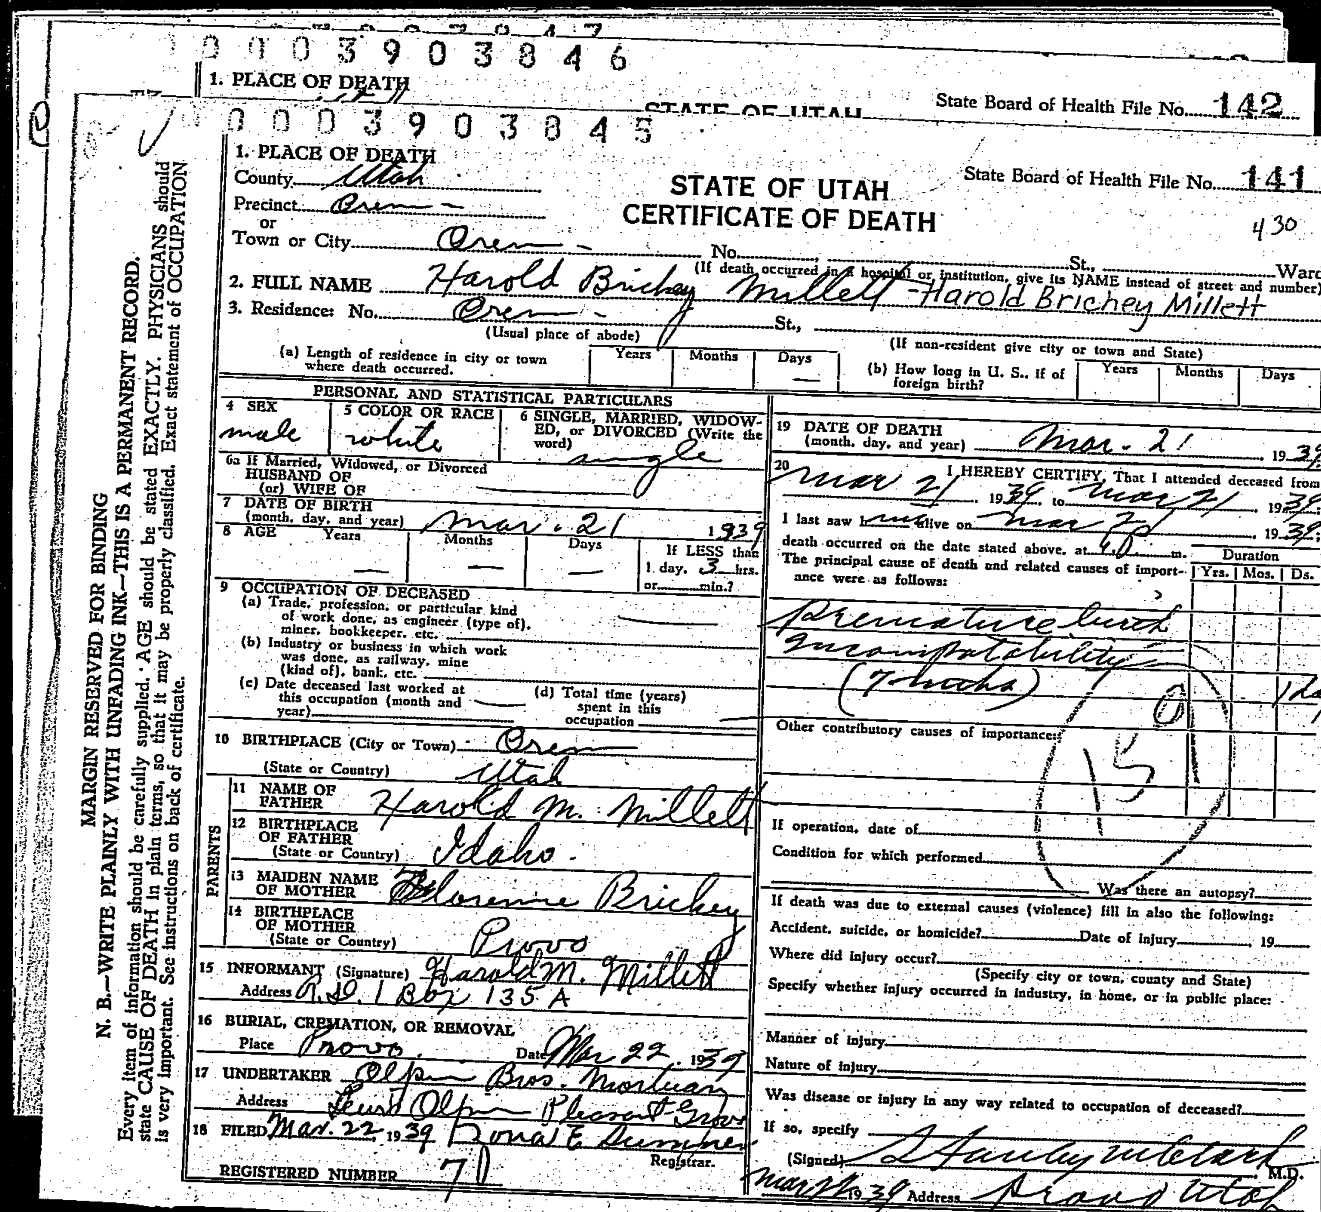 0003903846
1. PLACE OF DEATH
STATE OF UTAH
State Board of Health File No. 142
0003903845
1. PLACE OF DEATH
County Utah
Precinct Orem
or
Town or City Orem No. St., Ward
STATE OF UTAH
CERTIFICATE OF DEATH
State Board of Health File No. 141
430
(If death occurred in a hospital or institution, give its NAME instead of street and number)
2. FULL NAME Harold Brichey Millett - Harold Brichey Millett
3. Residence: No. Orem St.,
(Usual place of abode)
(If non-resident give city or town and State)
(a) Length of residence in city or town where death occurred. Years Months Days
(b) How long in U. S., if of foreign birth? Years Months Days
PERSONAL AND STATISTICAL PARTICULARS
4 SEX male
5 COLOR OR RACE white
6 SINGLE, MARRIED, WIDOWED, or DIVORCED (Write the word) single
6a If Married, Widowed, or Divorced
HUSBAND OF
(or) WIFE OF
7 DATE OF BIRTH
(month, day, and year) Mar. 21 1939
8 AGE Years Months Days
If LESS than
1 day, 3 hrs.
or min.?
9 OCCUPATION OF DECEASED
(a) Trade, profession, or particular kind
of work done, as engineer (type of),
miner, bookkeeper, etc.
(b) Industry or business in which work
was done, as railway, mine
(kind of), bank, etc.
(c) Date deceased last worked at
this occupation (month and
year)
(d) Total time (years)
spent in this
occupation
10 BIRTHPLACE (City or Town) Orem
(State or Country) Utah
PARENTS
11 NAME OF
FATHER Harold M. Millett
12 BIRTHPLACE
OF FATHER
(State or Country) Idaho.
13 MAIDEN NAME
OF MOTHER Brickey
14 BIRTHPLACE
OF MOTHER
(State or Country) Provo
15 INFORMANT (Signature) Harold M. Millett
Address R.D. 1 Box 135 A
16 BURIAL, CREMATION, OR REMOVAL
Place Provo. Date Mar 22, 1939
17 UNDERTAKER Olpin Bros. Mortuary
Address Olpin Pleasant Grove
18 FILED Mar. 22, 1939
Registrar.
REGISTERED NUMBER 7
19 DATE OF DEATH
(month, day, and year) Mar. 21, 1939
20 I HEREBY CERTIFY, That I attended deceased from
Mar 21, 1939, to Mar 21, 1939.
I last saw h alive on Mar 21, 1939;
death occurred on the date stated above, at m.
The principal cause of death and related causes of importance were as follows:
Duration
Yrs. Mos. Ds.
Premature birth
Incompatability
(7 months)
1 da
Other contributory causes of importance:
If operation, date of
Condition for which performed
Was there an autopsy?
If death was due to external causes (violence) fill in also the following:
Accident, suicide, or homicide? Date of injury , 19
Where did injury occur?
(Specify city or town, county and State)
Specify whether injury occurred in industry, in home, or in public place:
Manner of injury
Nature of injury
Was disease or injury in any way related to occupation of deceased?
If so, specify
(Signed) Stanley M. Clark M.D.
1939 Address Provo Utah
MARGIN RESERVED FOR BINDING
N. B.—WRITE PLAINLY WITH UNFADING INK—THIS IS A PERMANENT RECORD.
Every item of information should be carefully supplied. AGE should be stated EXACTLY. PHYSICIANS should
state CAUSE OF DEATH in plain terms, so that it may be properly classified. Exact statement of OCCUPATION
is very important. See instructions on back of certificate.